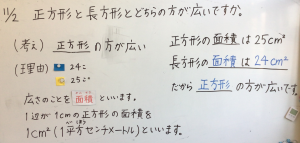 11/2 正方形と長方形とどちらの方が広いですか。
(考え) 正方形の方が広い
(理由) 24こ
25こ
広さのことを面積といいます。
1辺が1cmの正方形の面積を
1cm²(1平方センチメートル)といいます。
正方形の面積は25cm²
長方形の面積は24cm²
だから正方形の方が広いです。